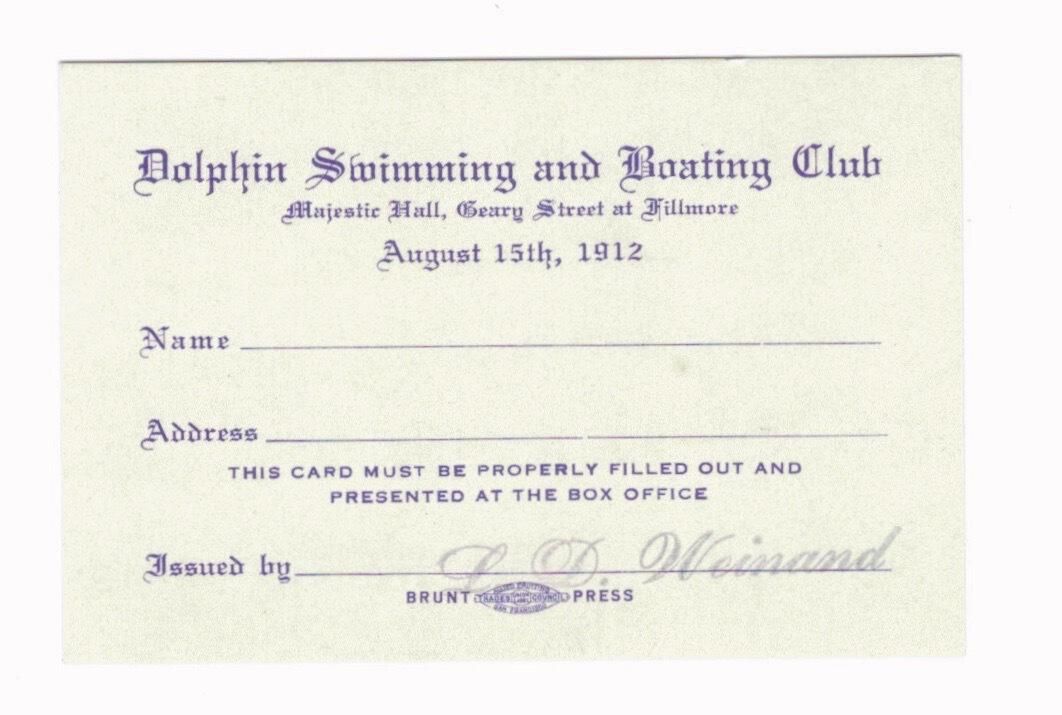 Dolphin Swimming and Boating Club
Majestic Hall, Geary Street at Fillmore
August 15th, 1912
Name
Address
THIS CARD MUST BE PROPERLY FILLED OUT AND
PRESENTED AT THE BOX OFFICE
Issued by D. Weinand
BRUNT ALLIED PRINTING TRADES UNION LABEL COUNCIL SAN FRANCISCO PRESS